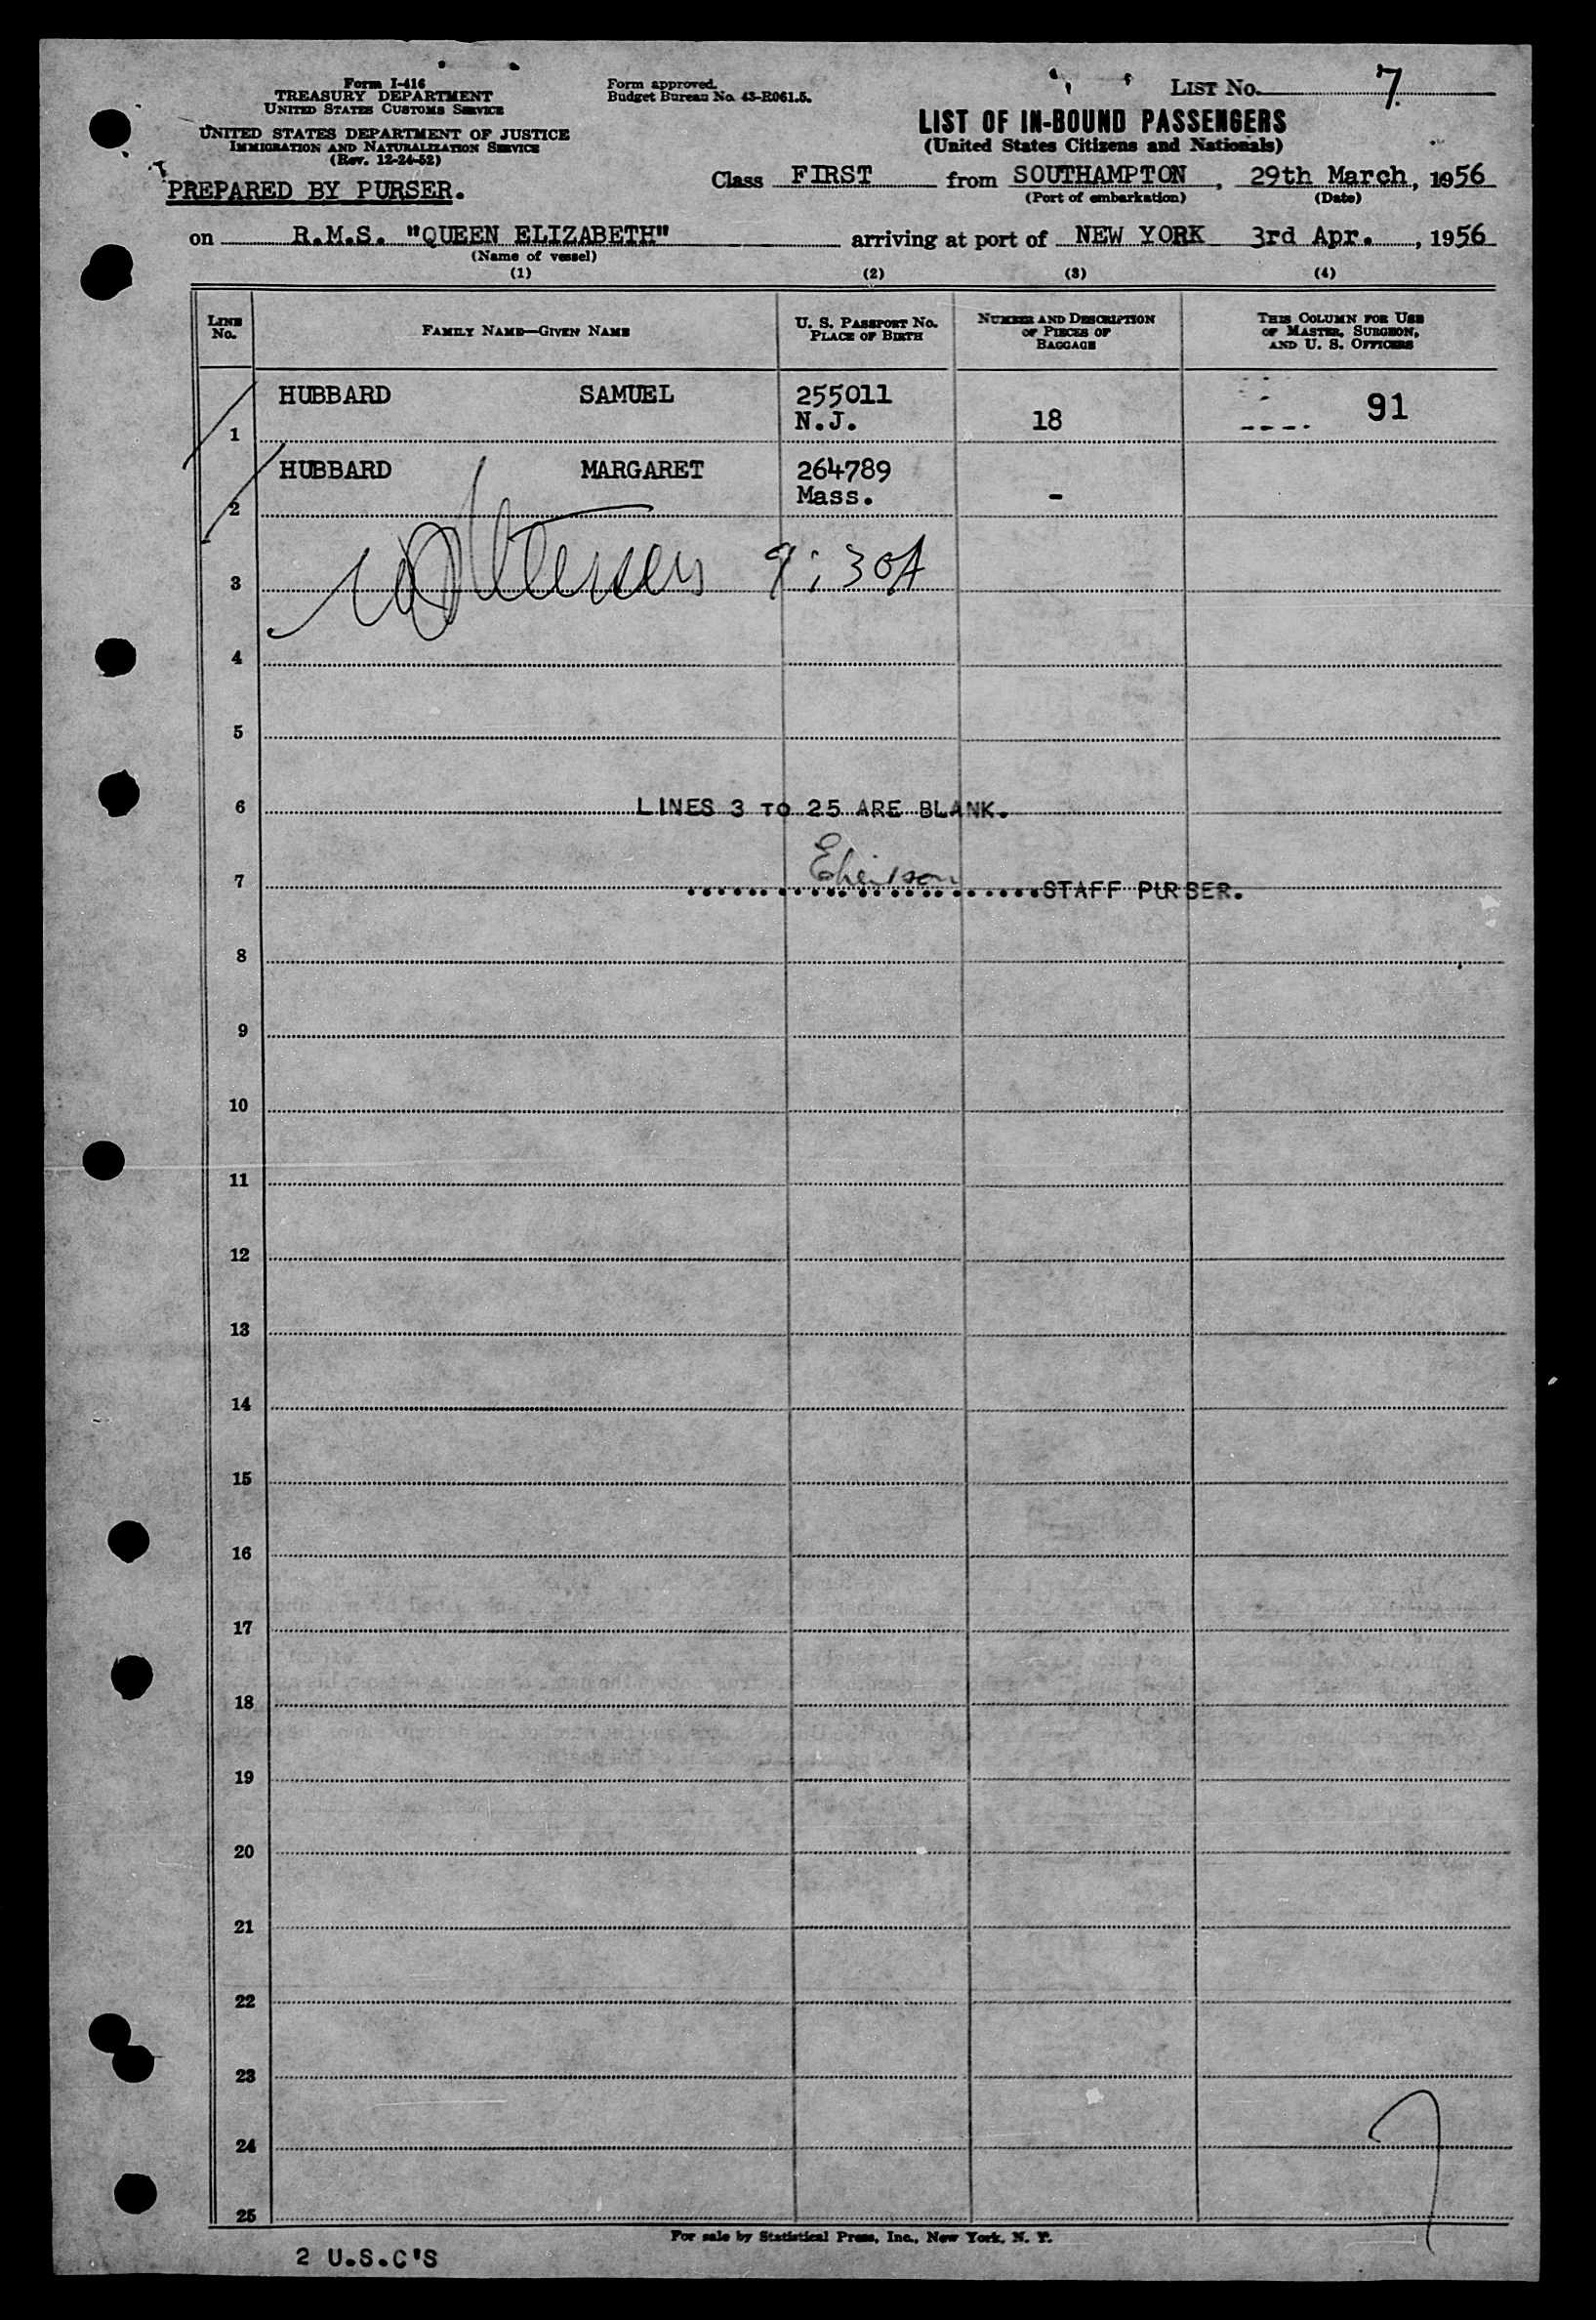 Form I-416
TREASURY DEPARTMENT
UNITED STATES CUSTOMS SERVICE
UNITED STATES DEPARTMENT OF JUSTICE
IMMIGRATION AND NATURALIZATION SERVICE
(Rev. 12-24-52)
PREPARED BY PURSER.
Form approved.
Budget Bureau No. 43-R061.5.
LIST No. 7
LIST OF IN-BOUND PASSENGERS
(United States Citizens and Nationals)
Class FIRST from SOUTHAMPTON, 29th March, 1956
(Port of embarkation) (Date)
on R.M.S. "QUEEN ELIZABETH" arriving at port of NEW YORK 3rd Apr., 1956
(Name of vessel)
(1) (2) (3) (4)
LINE No. FAMILY NAME—GIVEN NAME U. S. PASSPORT No. PLACE OF BIRTH NUMBER AND DESCRIPTION OF PIECES OF BAGGAGE THIS COLUMN FOR USE OF MASTER, SURGEON, AND U. S. OFFICERS
HUBBARD SAMUEL 255011 91
1 N.J. 18
HUBBARD MARGARET 264789
2 Mass. -
3 9:30A
4
5
6 LINES 3 TO 25 ARE BLANK.
7 STAFF PURSER.
8
9
10
11
12
13
14
15
16
17
18
19
20
21
22
23
24
25
For sale by Statistical Press, Inc., New York, N. Y.
2 U.S.C'S